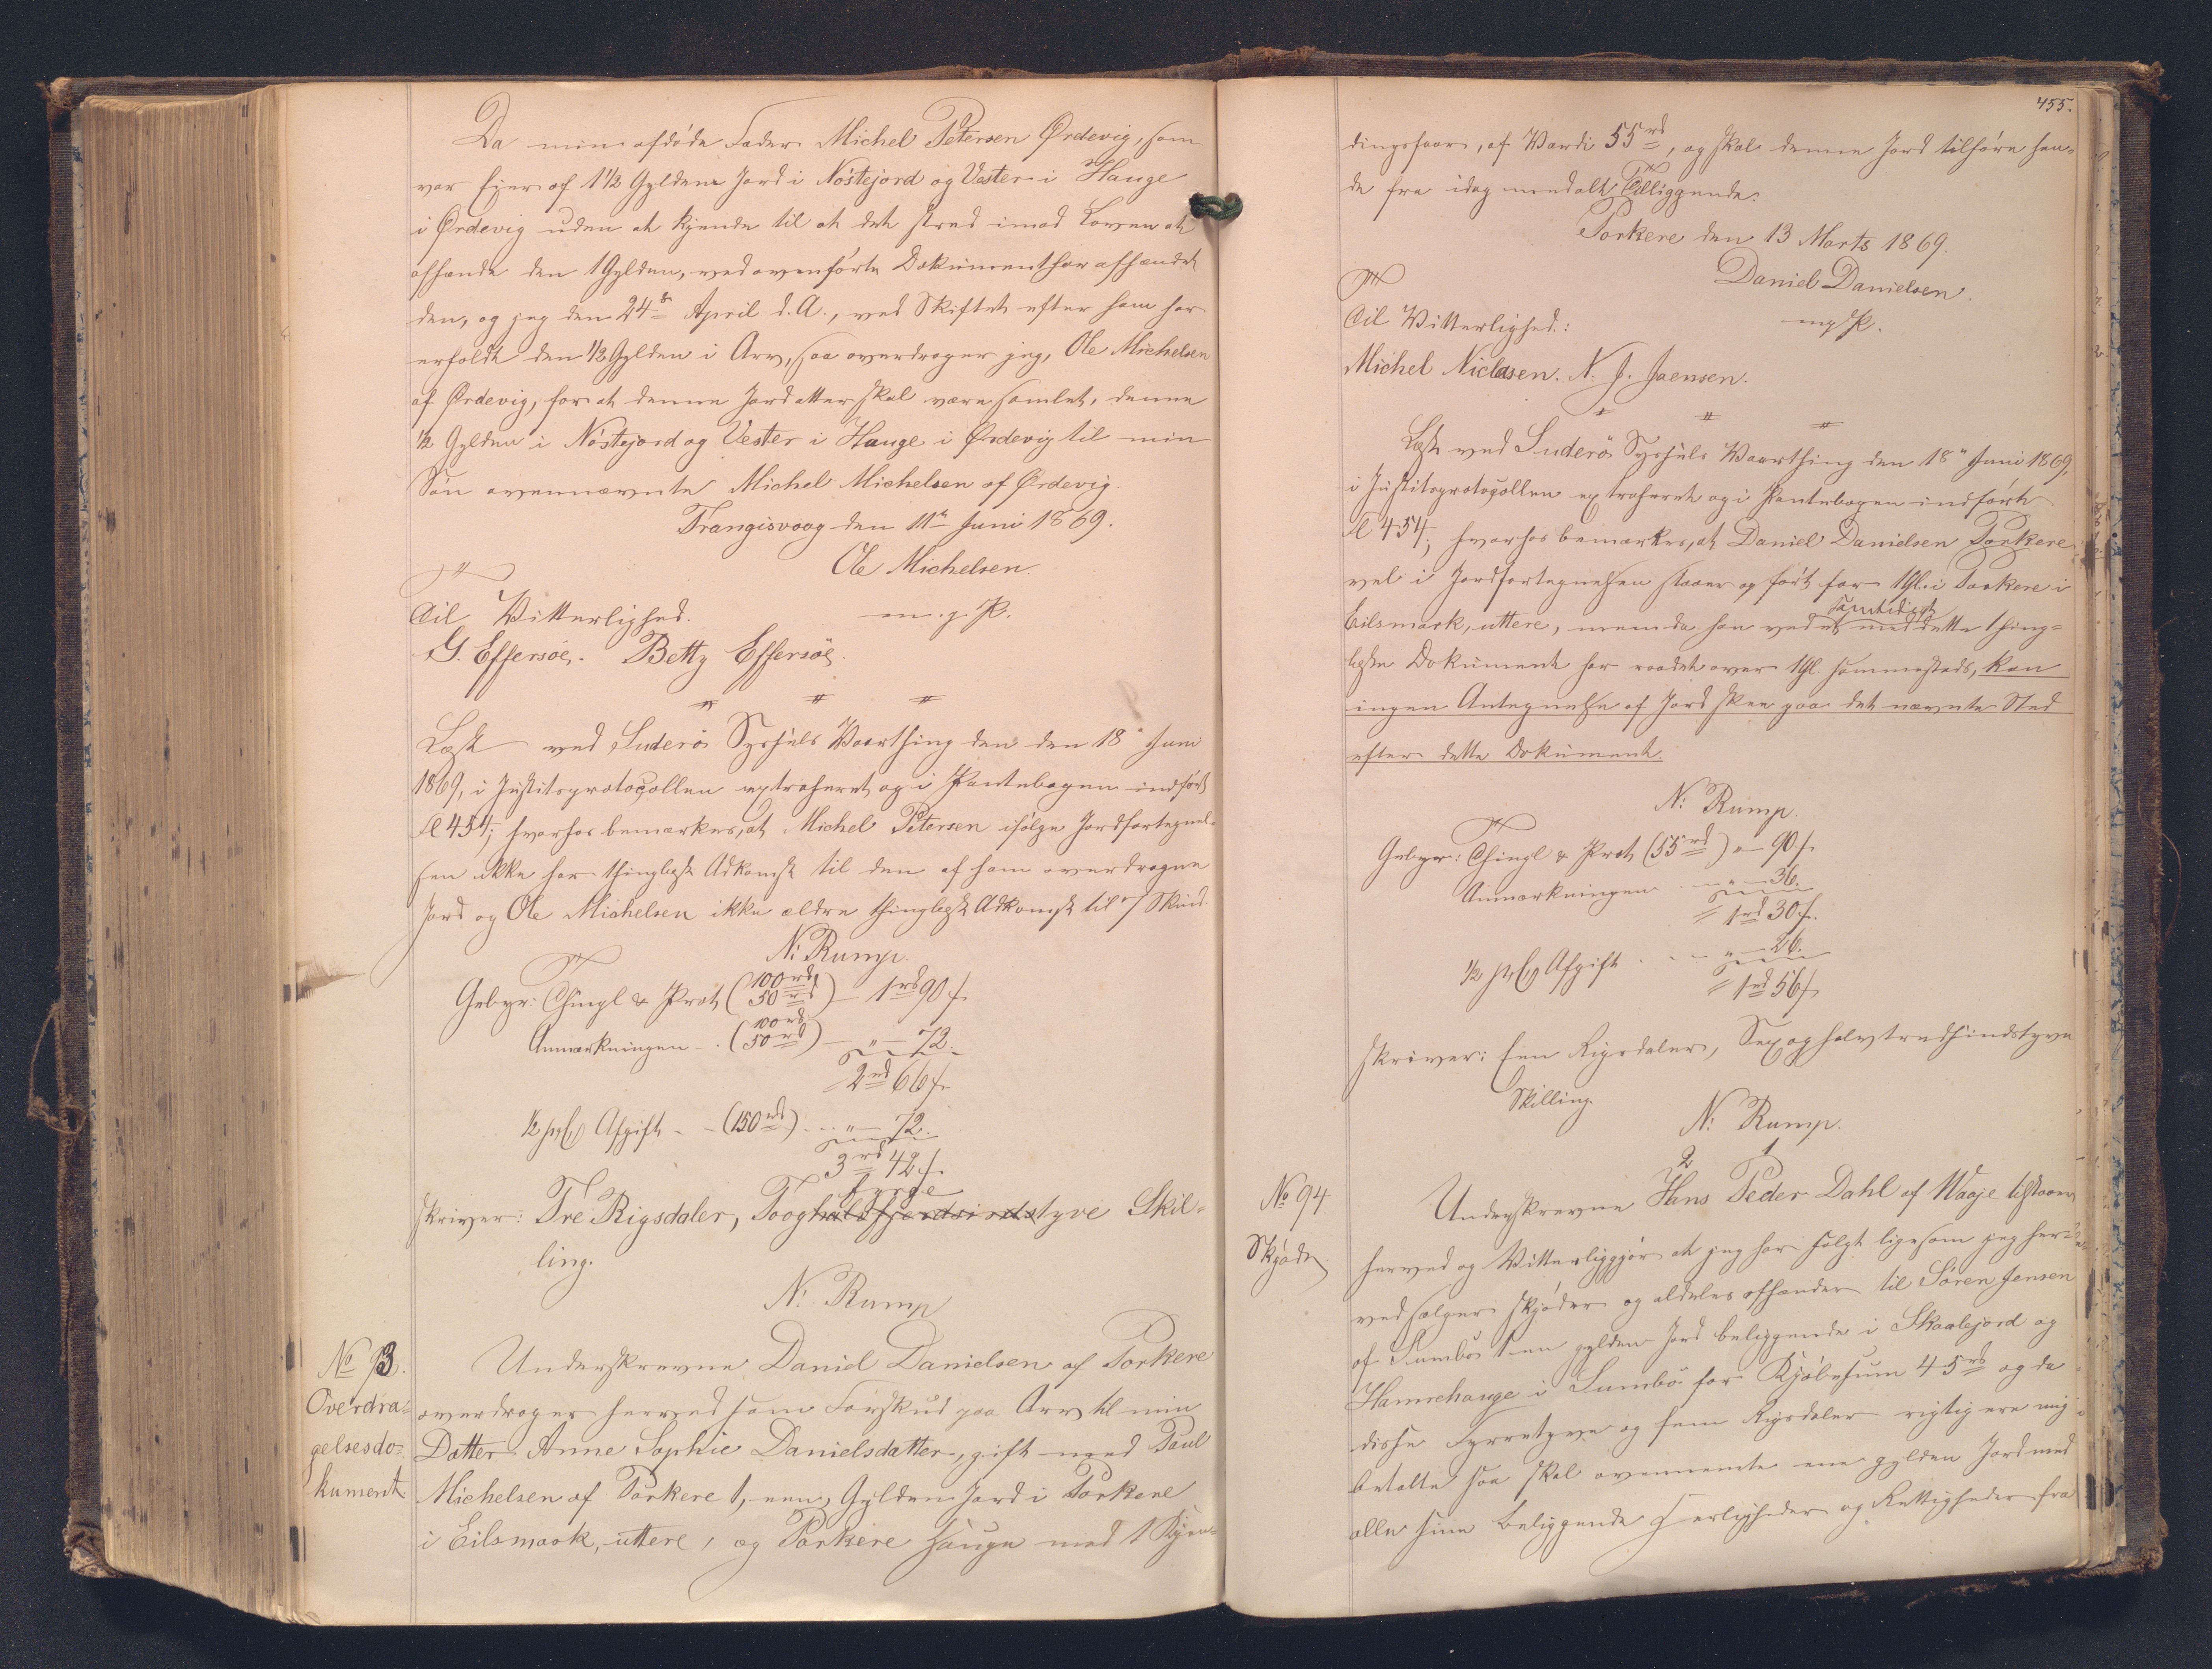 Da min afdøde Fader Michel Petersen Ørdevig, som
var Eier af 1 1/2 Gylden Jord i Nöstejord og Vester i Hauge
i Ørdevig uden at kjende til at det stred imod Loven at
afhænde den 1 Gylden, ved ovenförte Dokument har afhændet
den, og jeg den 24de April d. A., ved Skiftet efter ham har
erholdt den 1/2 Gylden i Arv, saa overdrager jeg, Ole Michelsen
af Ørdevig, for at denne Jord atter skal være samlet, denne
1/2 Gylden i Nöstejord og Vester i Hauge i Ørdevig til min
Sön ovennævnte Michel Michelsen af Ørdevig.
Trangisvaag den 11te Juni 1869.
Ole Michelsen.
m. g. P.
Til Vitterlighed.
G. Effersöe. Betty Effersöe.
Læst ved Suderö Syssels Vaarthing den den 18" Juni
1869, i Justitsprotocollen extraheret og i Pantebogen indfört
Fl 454; hvorhos bemærkes, at Michel Petersen ifölge Jordfortegnel-
sen ikke har thinglæst Adkomst til den af ham overdragne
Jord og Ole Michelsen ikke ældre thinglæst Adkomst til 7 Skind.
N: Rump.
Gebyr: Thingl & Prot (100rd 50rd) — 1rd 90 s.
Anmærkningen - . (100rd 50rd) — " — 72.
2rd 66 s.
1/2 prCt Afgift - - (150rd) . . . " — 72.
3rd 42 s.
fyrge
skriver: Tre Rigsdaler, Tooghalvfjerdsindstyve Skil-
ling.
N: Rump
No 93.
Overdra-
gelsesdo-
kument
Underskrevne Daniel Danielsen af Porkere
overdrager herved som Forskud paa Arv til min
Datter Anne Sophie Danielsdatter, gift med Poul
Michelsen af Porkere 1, een, Gylden Jord i Porkere
i Eilsmark, uttere, og Porkere Hauge med 1 Kjen-
455.
dingsfaar, af Værdi 55rd, og skal denne Jord tilhöre hen-
de fra idag med alt Tilliggende.
Porkere den 13 Marts 1869.
Daniel Danielsen.
m g P.
Til Vitterlighed:
Michel Niclasen. N. J. Jaensen.
Læst ved Suderö Syssels Vaarthing den 18" Juni 1869,
i Justitsprotocollen extraheret og i Pantebogen indfört
Fl 454; hvorhos bemærkes, at Daniel Danielsen Porkere
vel i Jordfortegnelsen staaer opfört for 1 Gl. i Porkere i
Eilsmark, uttere, men da han ved et med dette samtidigt thing-
læst Dokument har raadet over 1 Gl. sammesteds, kan
ingen Antegnelse af Jord skee paa det nævnte Sted
efter dette Dokument.
N: Rump.
Gebyr: Thingl & Prot (55rd) " — 90 s.
Anmærkningen . — " — 36.
1rd 30 s.
1/2 prCt Afgift . . - " — 26.
1rd 56 s.
skriver: Een Rigsdaler, Sex og halvtredsindstyve
Skilling.
N: Rump.
No 94
Skjöde
2 1
Underskrevne Hans Peder Dahl af Waaje tilstaaer
herved og Vitterliggjör at jeg har solgt ligesom jeg her-
ved sælger skjöder og aldeles afhænder til Sören Jensen
af Sumbö 1 en gylden Jord beliggende i Skaalejord og
Hamrehauge i Sumbö for Kjöbesum 45rd og da
disse Fyrretyve og fem Rigsdaler rigtig ere mig
betalte saa skal ovennævnte ene gylden Jord med
alle sine beliggende Herligheder og Rettigheder fra